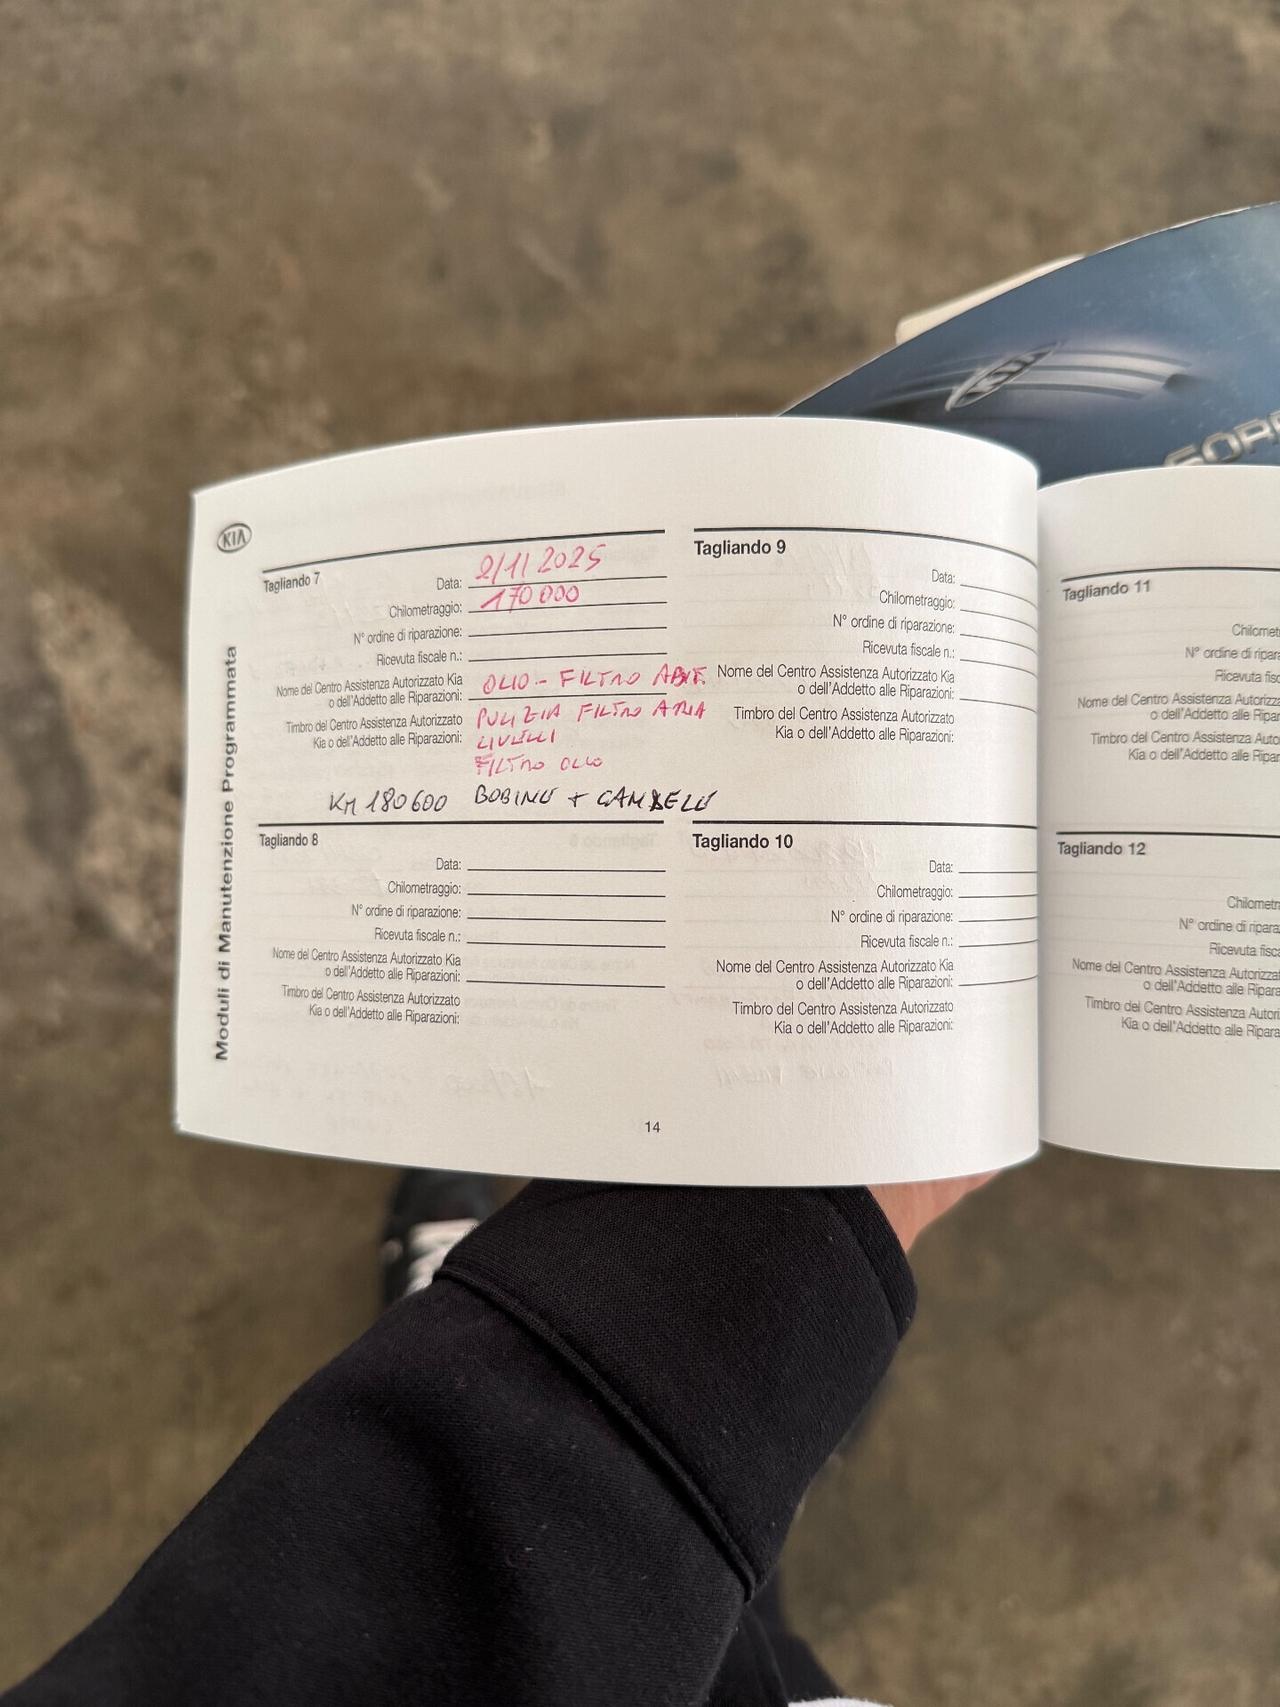 KIA
SORE
KIA
Moduli di Manutenzione Programmata
Tagliando 7
Data: 2/11/2025
Chilometraggio: 170000
N° ordine di riparazione:
Ricevuta fiscale n.:
Nome del Centro Assistenza Autorizzato Kia
o dell'Addetto alle Riparazioni:
OLIO - FILTRO ABIT.
Timbro del Centro Assistenza Autorizzato
Kia o dell'Addetto alle Riparazioni:
PULIZIA FILTRO ARIA
LIVELLI
FILTRO OLIO
KM 180600 BOBINE + CANDELE
Tagliando 8
Data:
Chilometraggio:
N° ordine di riparazione:
Ricevuta fiscale n.:
Nome del Centro Assistenza Autorizzato Kia
o dell'Addetto alle Riparazioni:
Timbro del Centro Assistenza Autorizzato
Kia o dell'Addetto alle Riparazioni:
Tagliando 9
Data:
Chilometraggio:
N° ordine di riparazione:
Ricevuta fiscale n.:
Nome del Centro Assistenza Autorizzato Kia
o dell'Addetto alle Riparazioni:
Timbro del Centro Assistenza Autorizzato
Kia o dell'Addetto alle Riparazioni:
Tagliando 10
Data:
Chilometraggio:
N° ordine di riparazione:
Ricevuta fiscale n.:
Nome del Centro Assistenza Autorizzato Kia
o dell'Addetto alle Riparazioni:
Timbro del Centro Assistenza Autorizzato
Kia o dell'Addetto alle Riparazioni:
14
Tagliando 11
Chilomet
N° ordine di ripara
Ricevuta fisc
Nome del Centro Assistenza Autorizza
o dell'Addetto alle Ripar
Timbro del Centro Assistenza Auto
Kia o dell'Addetto alle Ripar
Tagliando 12
Chilometr
N° ordine di ripara
Ricevuta fisca
Nome del Centro Assistenza Autorizzat
o dell'Addetto alle Ripar
Timbro del Centro Assistenza Autori
Kia o dell'Addetto alle Ripara